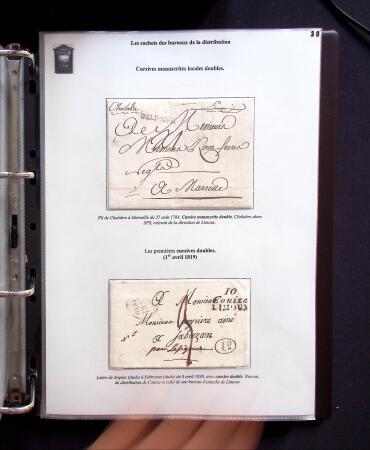 30
Les cachets des bureaux de la distribution
Cursives manuscrites locales doubles.
Chalabre
De LIMOUX
A Monsieur
Monsieur
Negt
A Marseille
Pli de Chalabre à Marseille du 27 août 1784, Cursive manuscrite double, Chalabre alors
SPS, relevait de la direction de Limoux.
Les premières cursives doubles.
(1er avril 1819)
10
Couiza
LIMOUX
A Monsieur
Monsieur ainé
A fabrezan
par Lésignan
1D
Lettre de Arques (Aude) à Fabrezan (Aude) du 8 avril 1830, avec cursive double, Bureau
de distribution de Couiza et celui de son bureau d'attache de Limoux